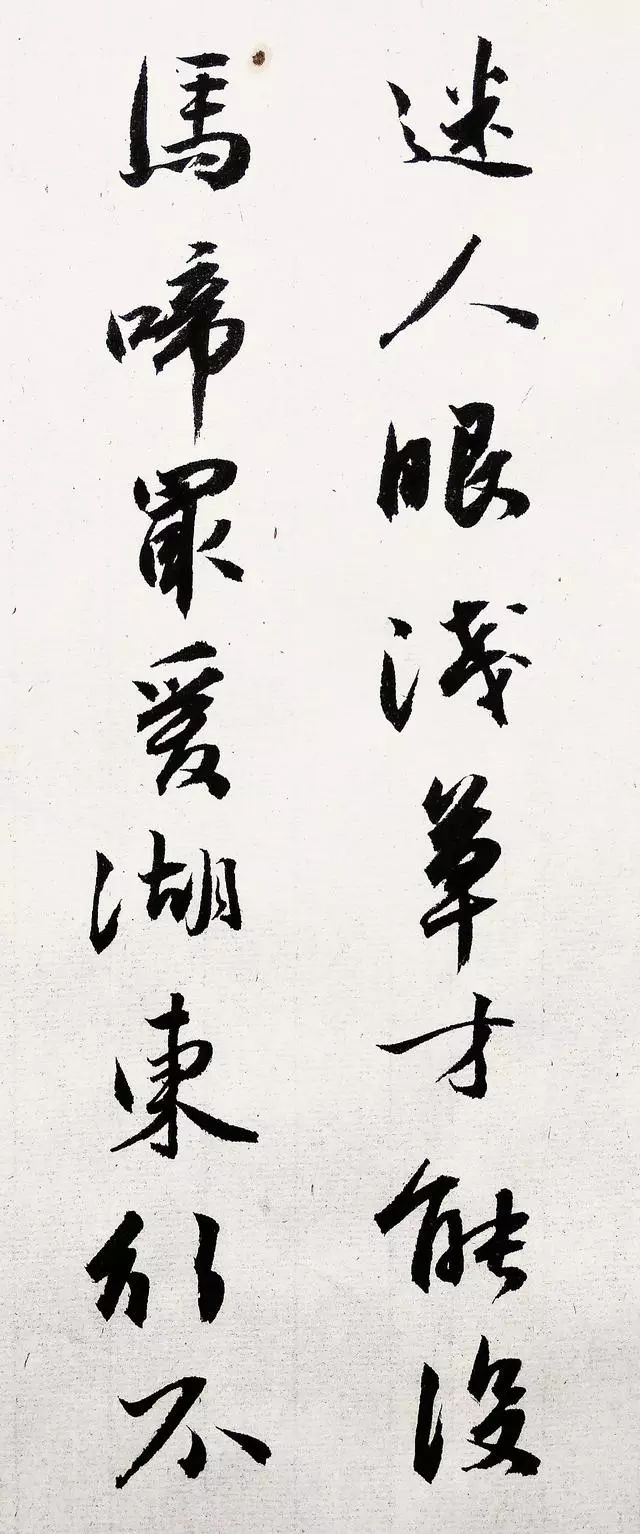 迷人眼淺草才能沒
馬啼最愛湖東行不